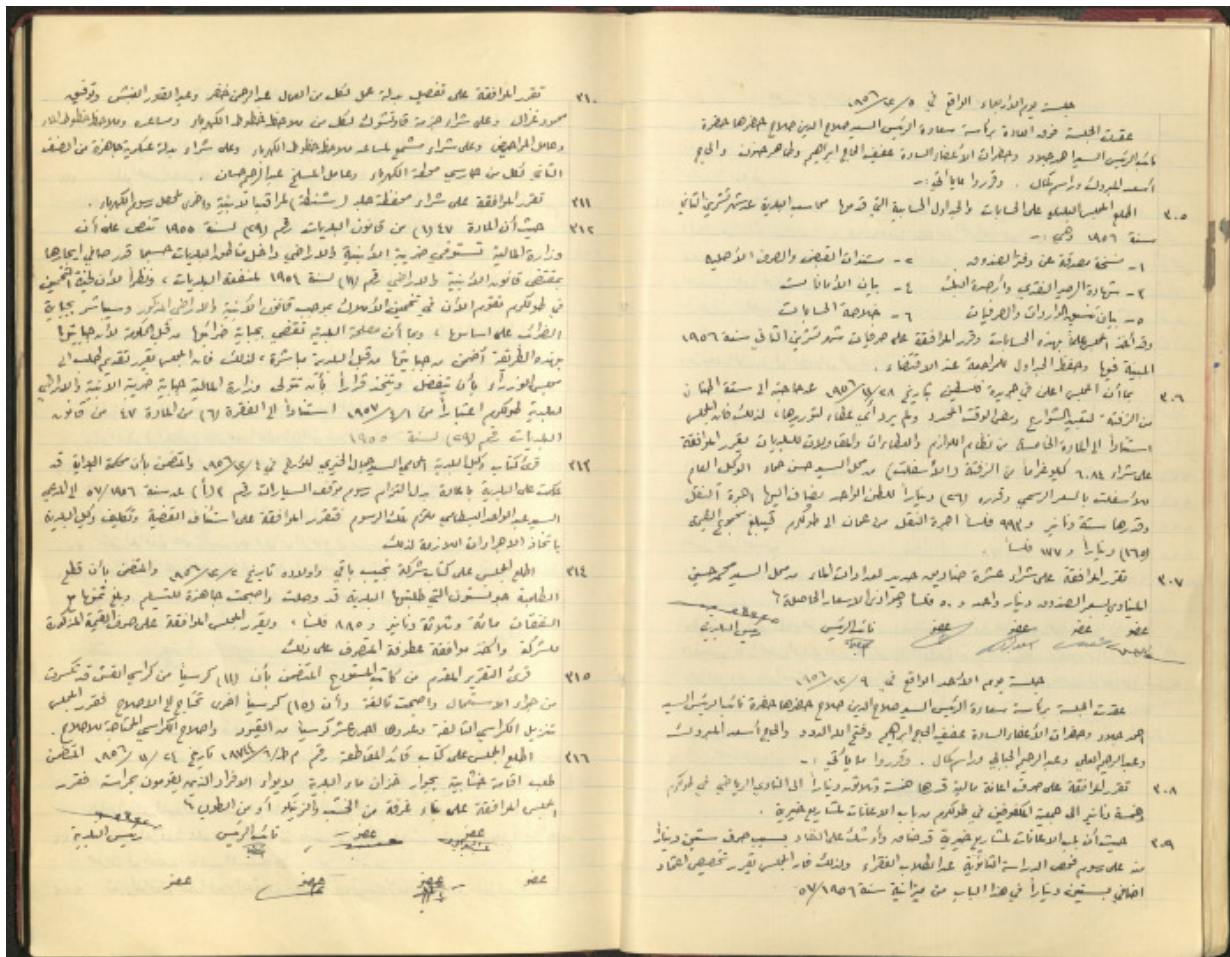 جلسة يوم الأربعاء الواقع في ٥/١٢/١٩٥٦
عقدت الجلسة فوق العادة برئاسة سعادة الرئيس السيد صلاح الدين صلاح حضرها حضرة
نائب الرئيس السيد احمد جلاد وحضرات الأعضاء السادة عفيف الحاج ابراهيم وطاهر حنون والحاج
أسعد المبروك وراسم كمال . وقرروا ما يأتي :-
٣٠٥ اطلع المجلس البلدي على الحسابات والجداول الحسابية التي قدمها محاسب البلدية عن شهر تشرين الثاني
سنة ١٩٥٦ وهي :-
١- نسخة مصدقة عن دفتر الصندوق ٢- مستندات القبض والصرف الأصلية
٣- شهادة الرصيد النقدي وأرصدة البنك ٤- بيان الأمانات
٥- بيان تنسيق الواردات والصرفيات ٦- خلاصة الحسابات
وقد أخذ المجلس علماً بهذه الحسابات وقرر الموافقة على صرفيات شهر تشرين الثاني سنة ١٩٥٦
المبينة فيها وحفظ الجداول للمراجعة عند الاقتضاء .
٣٠٦ بما أن المجلس اعلن في جريدة فلسطين بتاريخ ٢٨/١١/١٩٥٦ عن حاجته الى ستة اطنان
من الزفتة لتعبيد الشوارع ومضى الوقت المحدد ولم يرد أي عطاء لتوريدها، لذلك فان المجلس
استناداً الى المادة الخامسة من نظام اللوازم والعطاءات والمقاولات للبلديات يقرر الموافقة
على شراء ٦٠٨٤ كيلوغراماً من الزفتة (الأسفلت) من محل السيد حسن حماد الوكيل العام
للأسفلت بالسعر الرسمي وقدره (٢٦) ديناراً للطن الواحد يضاف اليها اجرة النقل
وقدرها ستة دنانير و ٩٩٣ فلسا اجرة النقل من عمان الى طولكرم فيبلغ مجموع القيمة
(١٦٥) ديناراً و ١٧٧ فلساً .
٣٠٧ تقرر الموافقة على شراء عشرة صناديق حديد لعدادات الماء من محل السيد محمد حسين
بسعر الصندوق دينار واحد و ٥٠ فلسا وهو ادنى الاسعار الحاصلة
عضو عضو عضو عضو نائب الرئيس رئيس البلدية
جلسة يوم الأحد الواقع في ٩/١٢/١٩٥٦
عقدت الجلسة برئاسة سعادة الرئيس السيد صلاح الدين صلاح حضرها حضرة نائب الرئيس السيد
احمد جلاد وحضرات الأعضاء السادة عفيف الحاج ابراهيم وفتح الله الددو والحاج أسعد المبروك
وعبد الرحيم العلي وعبد الرحيم الجيالي وراسم كمال . وقرروا ما يأتي :-
٣٠٨ تقرر الموافقة على صرف اعانة مالية قدرها خمسة وثلاثون ديناراً الى النادي الرياضي في طولكرم
وخمسة دنانير الى جمعية المكفوفين في طولكرم من باب الاعانات لمشاريع خيرية .
٣٠٩ حيث أن باب الاعانات لمشاريع خيرية قد ضاق وأوشك على النفاد بسبب صرف ستين ديناراً
منه على رسوم فحص الدراسة الثانوية عن الطلاب الفقراء ولذلك فان المجلس يقرر تخصيص اعتماد
اضافي بستين ديناراً في هذا الباب من ميزانية سنة ٥٧/١٩٥٦
٣١٠ تقرر الموافقة على تفصيل بدلة عمل لكل من العمال عبد الرحمن خضر وعبد القادر القبش وتوفيق
محمود غزال وعلى شراء جزمة كاوتشوك لكل من ملاحظ خطوط الكهرباء ومساعده وملاحظ خطوط الماء
وعامل المراحيض وعلى شراء مشمع لمساعد ملاحظ خطوط الكهرباء وعلى شراء بدلة عسكرية جاهزة من الصنف
الثاني لكل من حارسي محطة الكهرباء وعامل المسلخ عبد الرحيم حسان .
٣١١ تقرر الموافقة على شراء محفظة جلد (شنطة) لمراقب الأبنية واخرى لمحصل رسوم الكهرباء .
٣١٢ حيث أن المادة ٤٧ (٦) من قانون البلديات رقم (٢٩) لسنة ١٩٥٥ تنص على أن
وزارة المالية تستوفي ضريبة الأبنية والاراضي داخل مناطق البلديات حسبما قدر صافي ايجارها
بمقتضى قانون الأبنية والاراضي رقم (١١) لسنة ١٩٥٤ لمنفعة البلديات ، ونظراً لأن لجنة التخمين
في طولكرم تقوم الآن في تخمين الأملاك بموجب قانون الأبنية والاراضي المذكور وسيباشر بجباية
الضرائب على اساسها ، وبما أن مصلحة البلدية تقضي بجباية ضرائبها من قبل الحكومة لأن جبايتها
بهذه الطريقة أضمن من جبايتها من قبل البلدية مباشرة ، لذلك فان المجلس يقرر تقديم طلب الى
مجلس الوزراء بأن يتفضل ويتخذ قراراً بأن تتولى وزارة المالية جباية ضريبة الأبنية والاراضي
لبلدية طولكرم اعتباراً من ١/٤/١٩٥٧ استناداً الى الفقرة (٦) من المادة ٤٧ من قانون
البلديات رقم (٢٩) لسنة ١٩٥٥
٣١٣ قرئ كتاب وكيل البلدية المحامي السيد المؤرخ في ٤/١٢/١٩٥٦ والمتضمن بأن محكمة البداية قد
حكمت على البلدية باعادة بدل التزام رسوم موقف السيارات رقم ٢ (أ) عن سنة ٥٧/١٩٥٦ الى المدعي
السيد عبد الواحد البسطامي ملتزم تلك الرسوم فتقرر الموافقة على استئناف القضية وتكليف وكيل البلدية
باتخاذ الاجراءات اللازمة لذلك
٣١٤ اطلع المجلس على كتاب شركة نجيب باقي واولاده تاريخ والمتضمن بأن قطع
الطلمبة جونستون التي طلبتها البلدية قد وصلت واصبحت جاهزة للتسليم وبلغ ثمنها مع
النفقات مائة وثلاثة دنانير و ٨٨٥ فلساً ، ويقرر المجلس الموافقة على صرف القيمة المذكورة
للشركة وأخذ موافقة عطوفة المتصرف على ذلك
٣١٥ قرئ التقرير المقدم من كاتب المستودع المتضمن بأن (١١) كرسياً من كراسي القش قد تكسرت
من جراء الاستعمال واصبحت تالفة وأن (١٥) كرسياً اخرى تحتاج الى الاصلاح فقرر المجلس
تنزيل الكراسي التالفة وعددها احد عشر كرسياً من القيود واصلاح الكراسي المحتاجة للاصلاح .
٣١٦ اطلع المجلس على كتاب قائد المقاطعة رقم تاريخ ٢٤/١١/١٩٥٦ المتضمن
طلب اقامة خشابية بجوار خزان ماء البلدية لايواء الافراد الذين يقومون بحراسته فقرر
المجلس الموافقة على بناء غرفة من الخشب والزينكو أو من الطوب
عضو عضو نائب الرئيس رئيس البلدية
عضو عضو عضو عضو